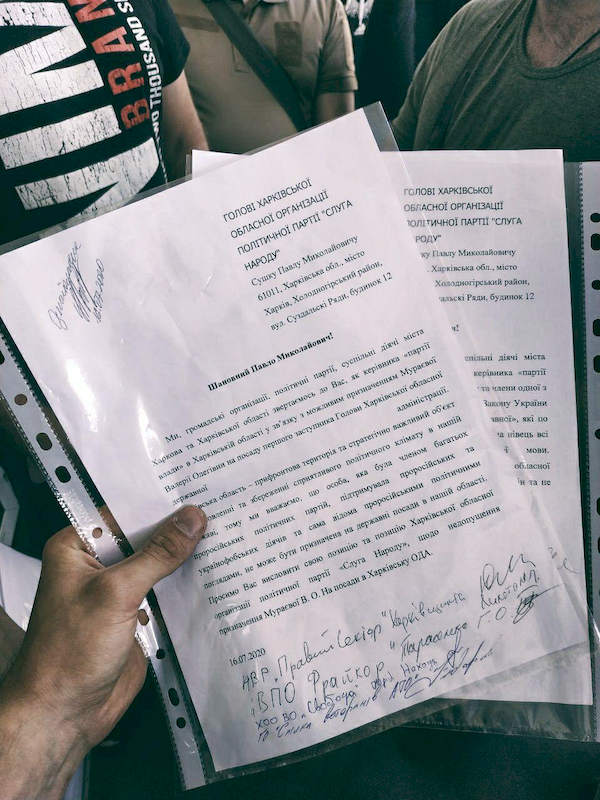 BRAN
THOUSAND S
ГОЛОВІ ХАРКІВСЬКОЇ
ОБЛАСНОЇ ОРГАНІЗАЦІЇ
ПОЛІТИЧНОЇ ПАРТІЇ "СЛУГА
НАРОДУ"
Сушку Павлу Миколайовичу
61011, Харківська обл., місто
Харків, Холодногірський район,
вул. Суздальські Ради, будинок 12
Шановний Павло Миколайович!
Ми, громадські організації, політичні партії, суспільні діячі міста
Харкова та Харківської області звертаємось до Вас, як керівника «партії
влади» в Харківській області у зв'язку з можливим призначенням Мураєвої
Валерії Олегівни на посаду першого заступника Голови Харківської обласної
державної адміністрації.
ська область – прифронтова територія та стратегічно важливий об'єкт
новленні та збереженні сприятливого політичного клімату в нашій
жаві, тому ми вважаємо, що особа, яка була членом багатьох
проросійських політичних партій, підтримувала проросійських та
українофобських діячів та сама відома проросійськими політичними
поглядами, не може бути призначена на державні посади в нашій області.
Просимо Вас висловити свою позицію та позицію Харківської обласної
організації політичної партії «Слуга Народу», щодо недопущення
призначення Мураєвої В. О. На посади в Харківську ОДА.
16.07.2020
"Правий Сектор" Харківщина
ВПО Фрайкор "
ХОО ВО "Свобода"
ГО Спілка ветеранів АТО
ГОЛОВІ ХАРКІВСЬКОЇ
ОБЛАСНОЇ ОРГАНІЗАЦІЇ
ПОЛІТИЧНОЇ ПАРТІЇ "СЛУГА
НАРОДУ"
шку Павлу Миколайовичу
, Харківська обл., місто
Холодногірський район,
здальскі Ради, будинок 12
!
спільні діячі міста
керівника «партії
та члени одної з
Закону України
ваної», які по
на нівець всі
ї мови.
обласної
ди та не